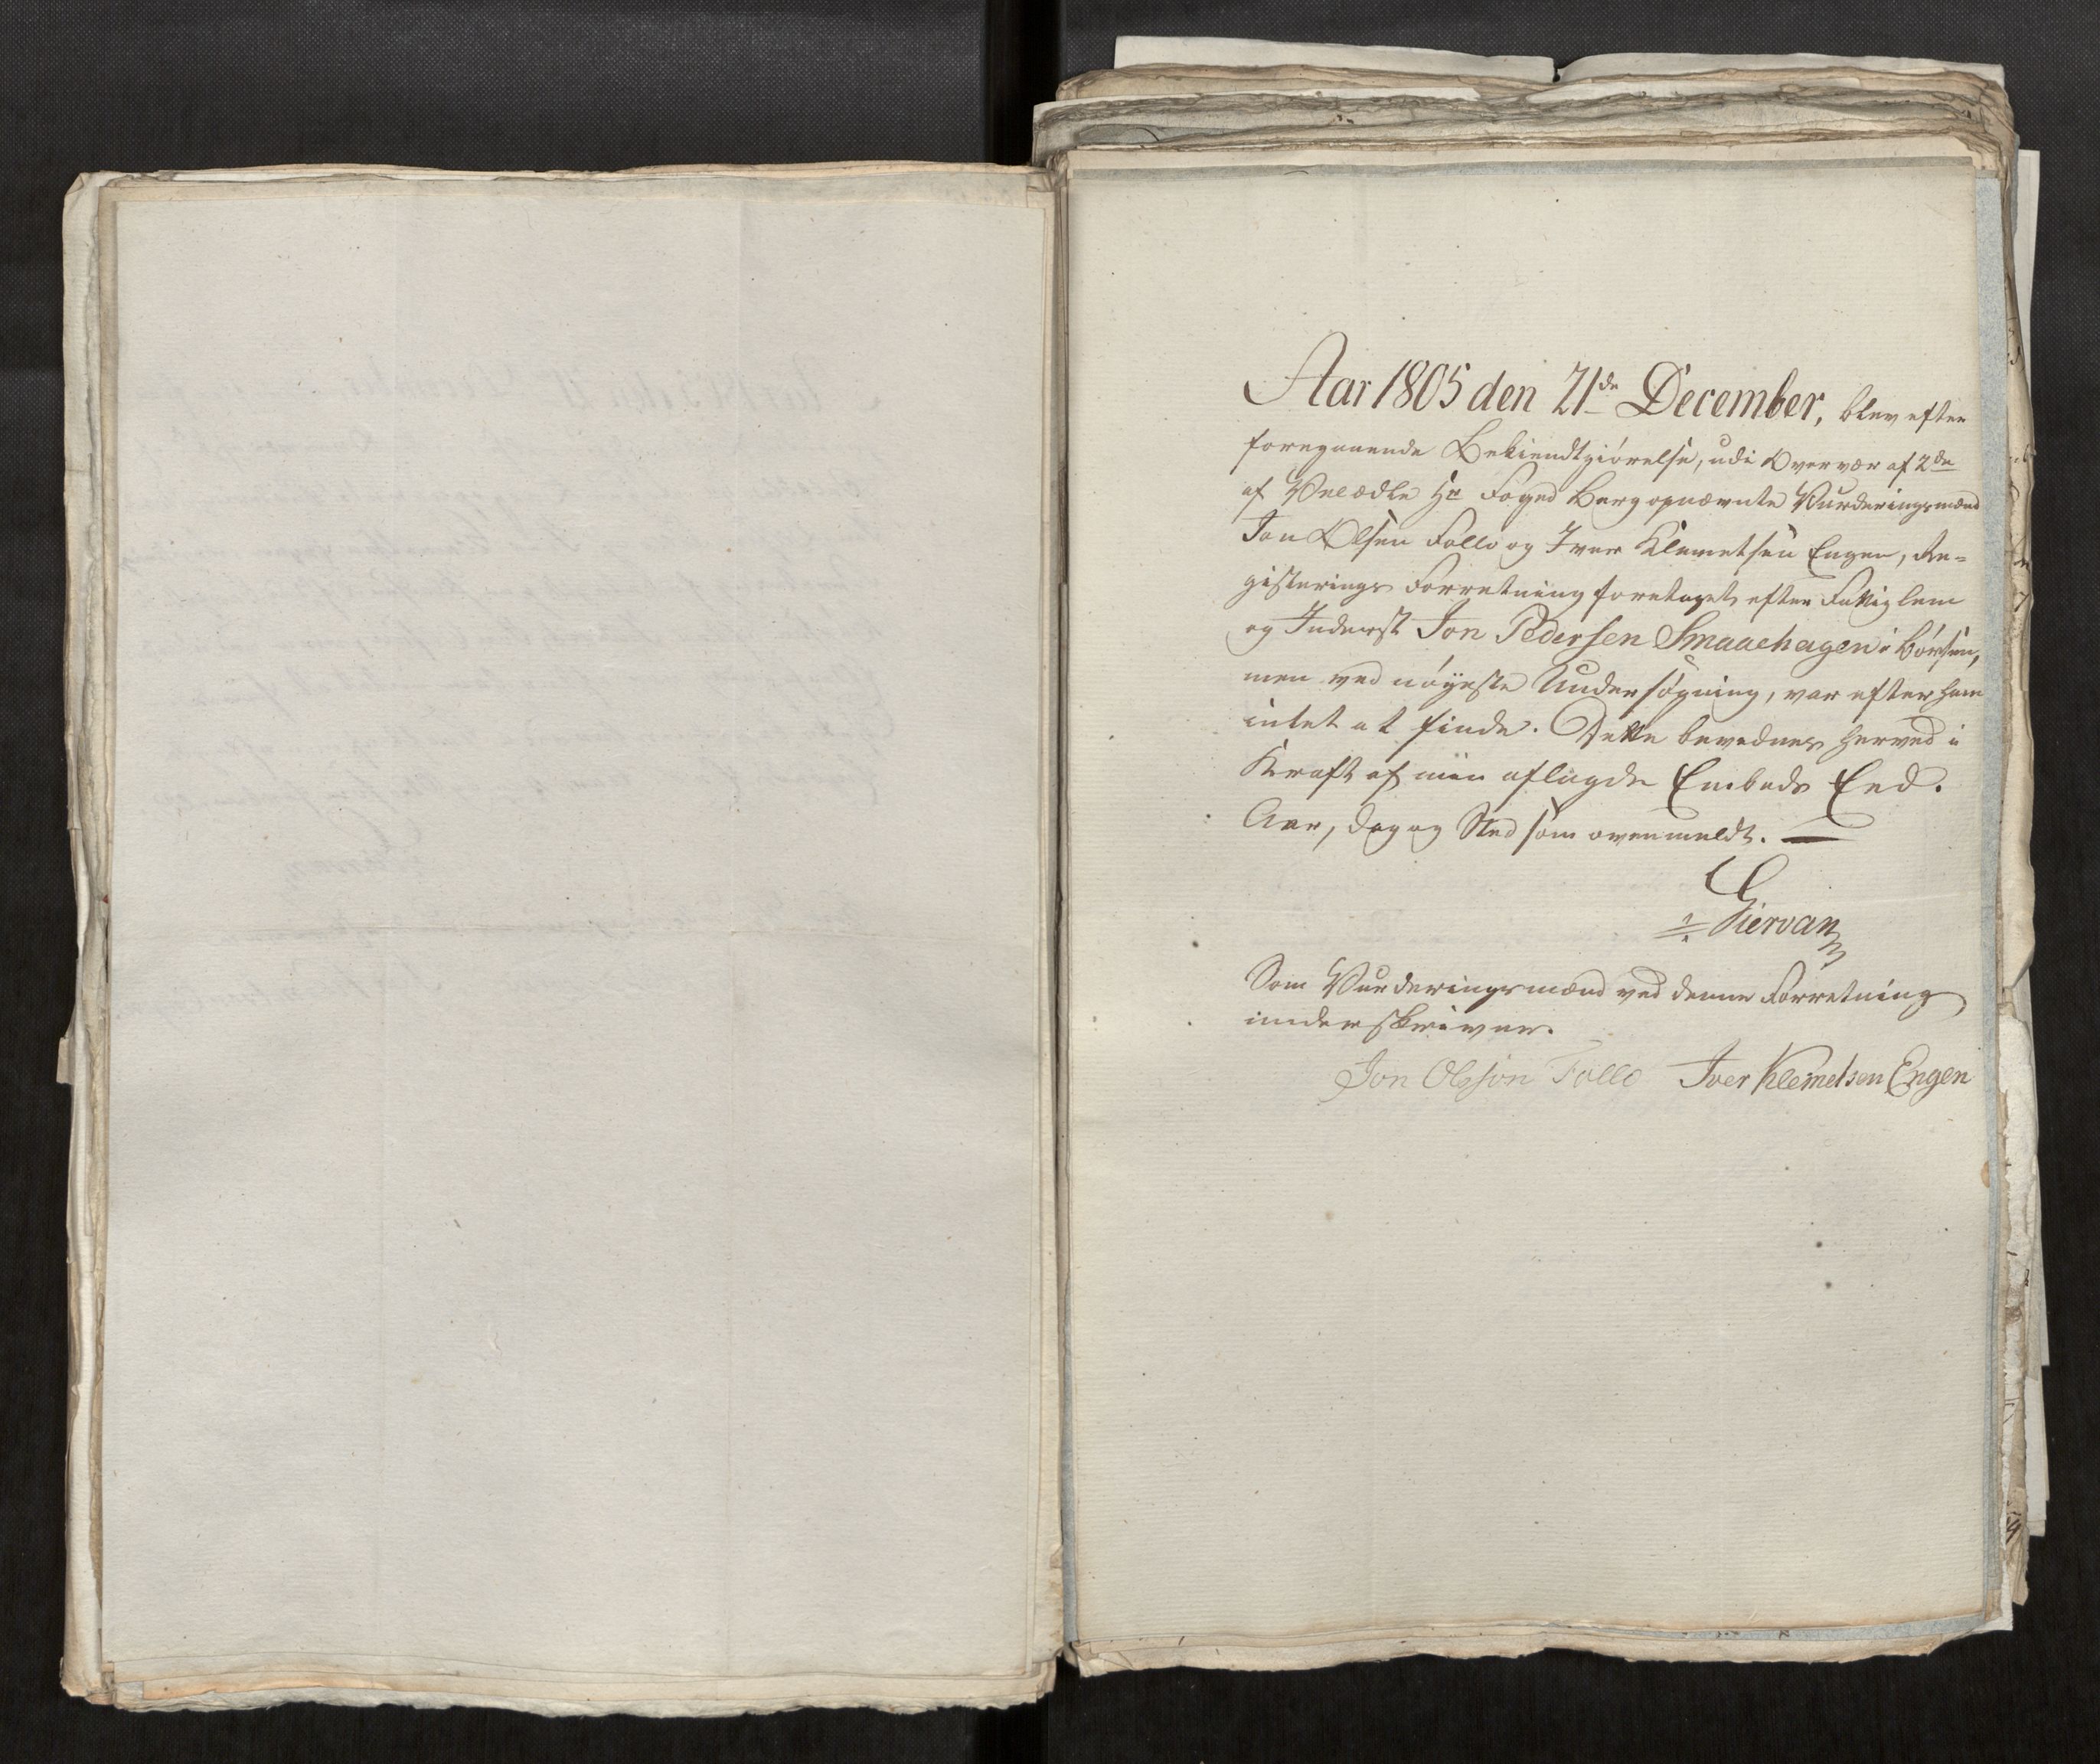 Aar 1805 den 21de December, blev efter
foregaaende Bekiendtgiörelse, udi Overvær af 2de
af Velædle Hr Foged Berg opnævnte Vurderingsmænd
Jon Olsen Follo og Iver Klemetsen Engen, Re-
gisterings Forretning foretaget efter Fattiglem
og Inderst Jon Pedersen Smaaehagen i Börsen,
men ved nöyeste Undersögning, var efter ham
intet at finde. Dette bevidnes herved i
Kraft af min aflagde Embeds Eed.
Aar, dag og Sted som ovenmeldt. —
Giervan
Som Vurderingsmænd ved denne Forretning
underskriver.
Jon Olssön Follo Iver Klemetsen Engen